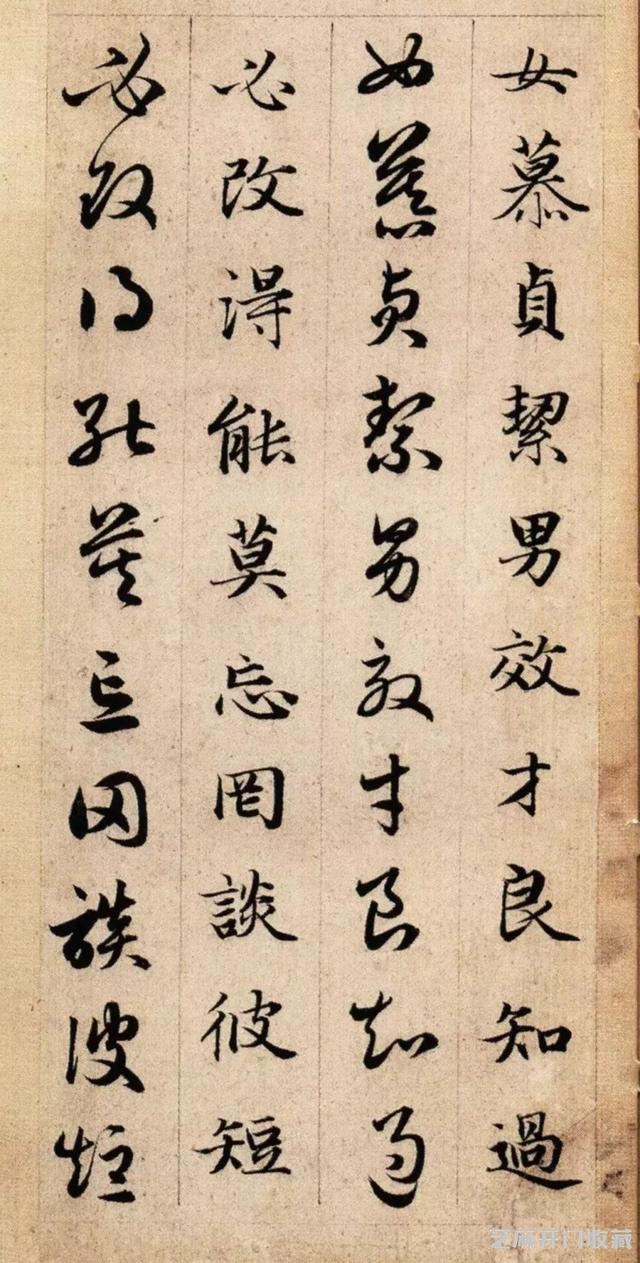 女慕貞絜男效才良知過
女慕貞絜男效才良知過
必改得能莫忘罔談彼短
必改得能莫忘罔談彼短
芝麻开门收藏